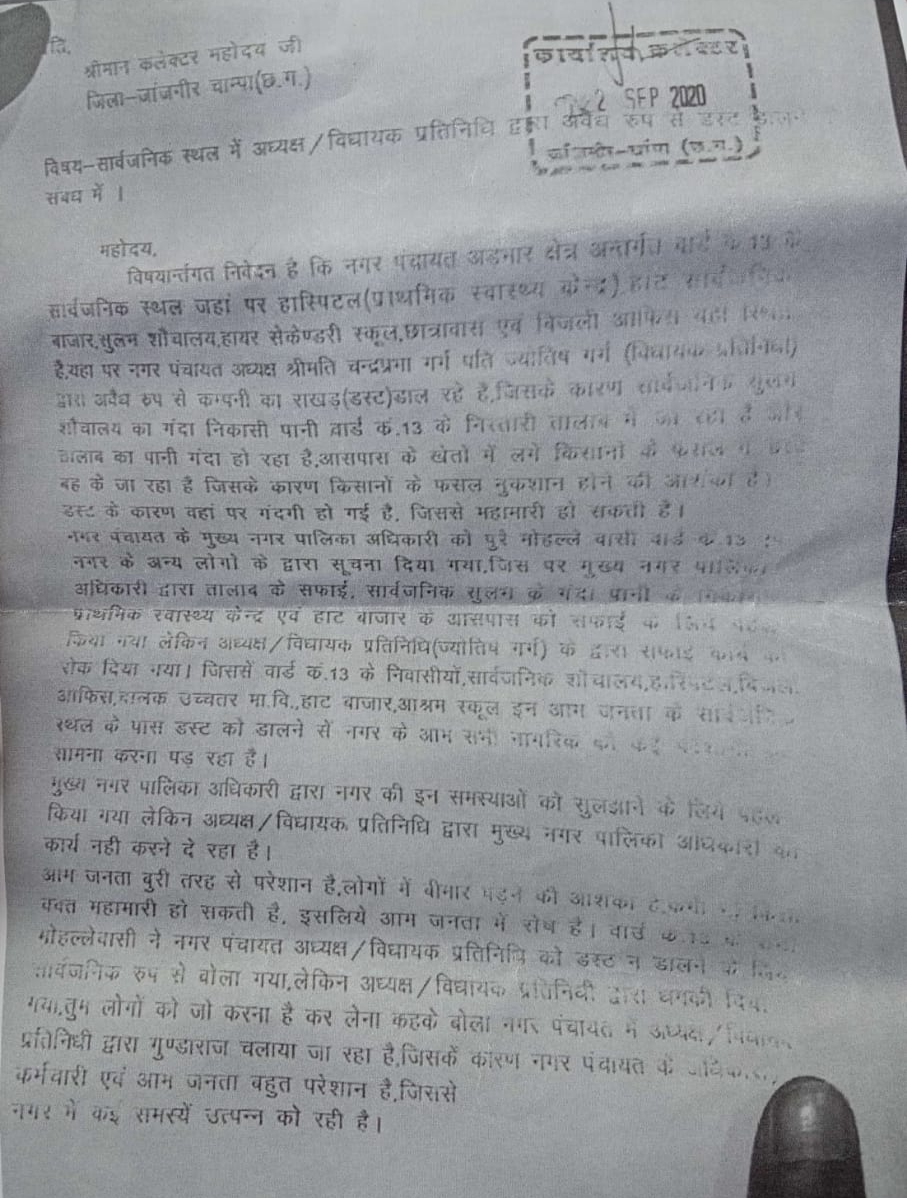 ति,
श्रीमान कलेक्टर महोदय जी
जिला-जांजगीर चाम्पा(छ.ग.)
कार्यालय कलेक्टर
2 SEP 2020
जांजगीर-चांपा (छ.ग.)
विषय-सार्वजनिक स्थल में अध्यक्ष/विधायक प्रतिनिधि द्वारा अवैध रुप से डस्ट डालने
संबध में ।
महोदय,
विषयार्न्तगत निवेदन है कि नगर पंचायत अडभार क्षेत्र अन्तर्गत वार्ड क.13 के
सार्वजनिक स्थल जहां पर हास्पिटल(प्राथमिक स्वास्थ्य केन्द्र),हाट सार्वजनिक
बाजार,सुलभ शौचालय,हायर सेकेण्डरी स्कूल,छात्रावास एवं बिजली आफिस यहा स्थित
है,यहा पर नगर पंचायत अध्यक्ष श्रीमति चन्द्रप्रभा गर्ग पति ज्योतिष गर्ग (विधायक प्रतिनिधी)
द्वारा अवैध रुप से कम्पनी का राखड़(डस्ट)डाल रहे है,जिसके कारण सार्वजनिक सुलभ
शौचालय का गंदा निकासी पानी वार्ड कं.13 के निस्तारी तालाब में जा रहा है और
तालाब का पानी गंदा हो रहा है,आसपास के खेतो में लगें किसानों के फसल में डस्ट
बह के जा रहा है जिसके कारण किसानों के फसल नुकशान होने की आशंका है।
डस्ट के कारण वहां पर गंदगी हो गई है, जिससे महामारी हो सकती है।
नगर पंचायत के मुख्य नगर पालिका अधिकारी को पुरे मोहल्ले वासी वार्ड क.13
नगर के अन्य लोगो के द्वारा सूचना दिया गया,जिस पर मुख्य नगर पालिका
अधिकारी द्वारा तालाब के सफाई, सार्वजनिक सुलभ के गंदा पानी के निकासी
प्राथमिक स्वास्थ्य केन्द्र एवं हाट बाजार के आसपास को सफाई के लिये पहल
किया गया लेकिन अध्यक्ष/विधायक प्रतिनिधि(ज्योतिष गर्ग) के द्वारा सफाई कार्य को
रोक दिया गया। जिससें वार्ड क.13 के निवासीयों,सार्वजनिक शौचालय,हास्पिटल,बिजली
आफिस,बालक उच्चतर मा.वि.,हाट बाजार,आश्रम स्कूल इन आम जनता के सार्वजनिक
स्थल के पास डस्ट को डालने सें नगर के आम सभी नागरिक को कई परेशानी
सामना करना पड़ रहा है।
मुख्य नगर पालिका अधिकारी द्वारा नगर की इन समस्याओं को सुलझाने के लिये पहल
किया गया लेकिन अध्यक्ष/विधायक प्रतिनिधि द्वारा मुख्य नगर पालिका अधिकारी को
कार्य नही करने दे रहा है।
आम जनता बुरी तरह से परेशान है,लोगों में बीमार पड़ने की आशका है,कभी भी किसी
वक्त महामारी हो सकती है, इसलिये आम जनता में रोष है। वार्ड क.13 के सभी
मोहल्लेवासी ने नगर पंचायत अध्यक्ष/विधायक प्रतिनिधि को डस्ट न डालने के लिए
सार्वजनिक रुप से बोला गया,लेकिन अध्यक्ष/विधायक प्रतिनिधी द्वारा धमकी दिया
गया,तुम लोगों को जो करना है कर लेना कहके बोला नगर पंचायत में अध्यक्ष/विधायक
प्रतिनिधी द्वारा गुण्डाराज चलाया जा रहा है,जिसकें कारण नगर पंचायत के अधिकारी,
कर्मचारी एवं आम जनता बहुत परेशान है,जिससे
नगर में कइ समस्यें उत्पन्न को रही है।